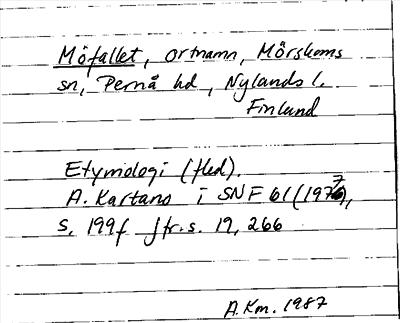 Möfallet, ortnamn, Mörskoms
sn, Pernå hd, Nylands l.
Finland
Etymologi (fled).
A. Kartano i SNF 61 (1977),
s. 199f jfr. s. 19, 266
A.Km. 1987